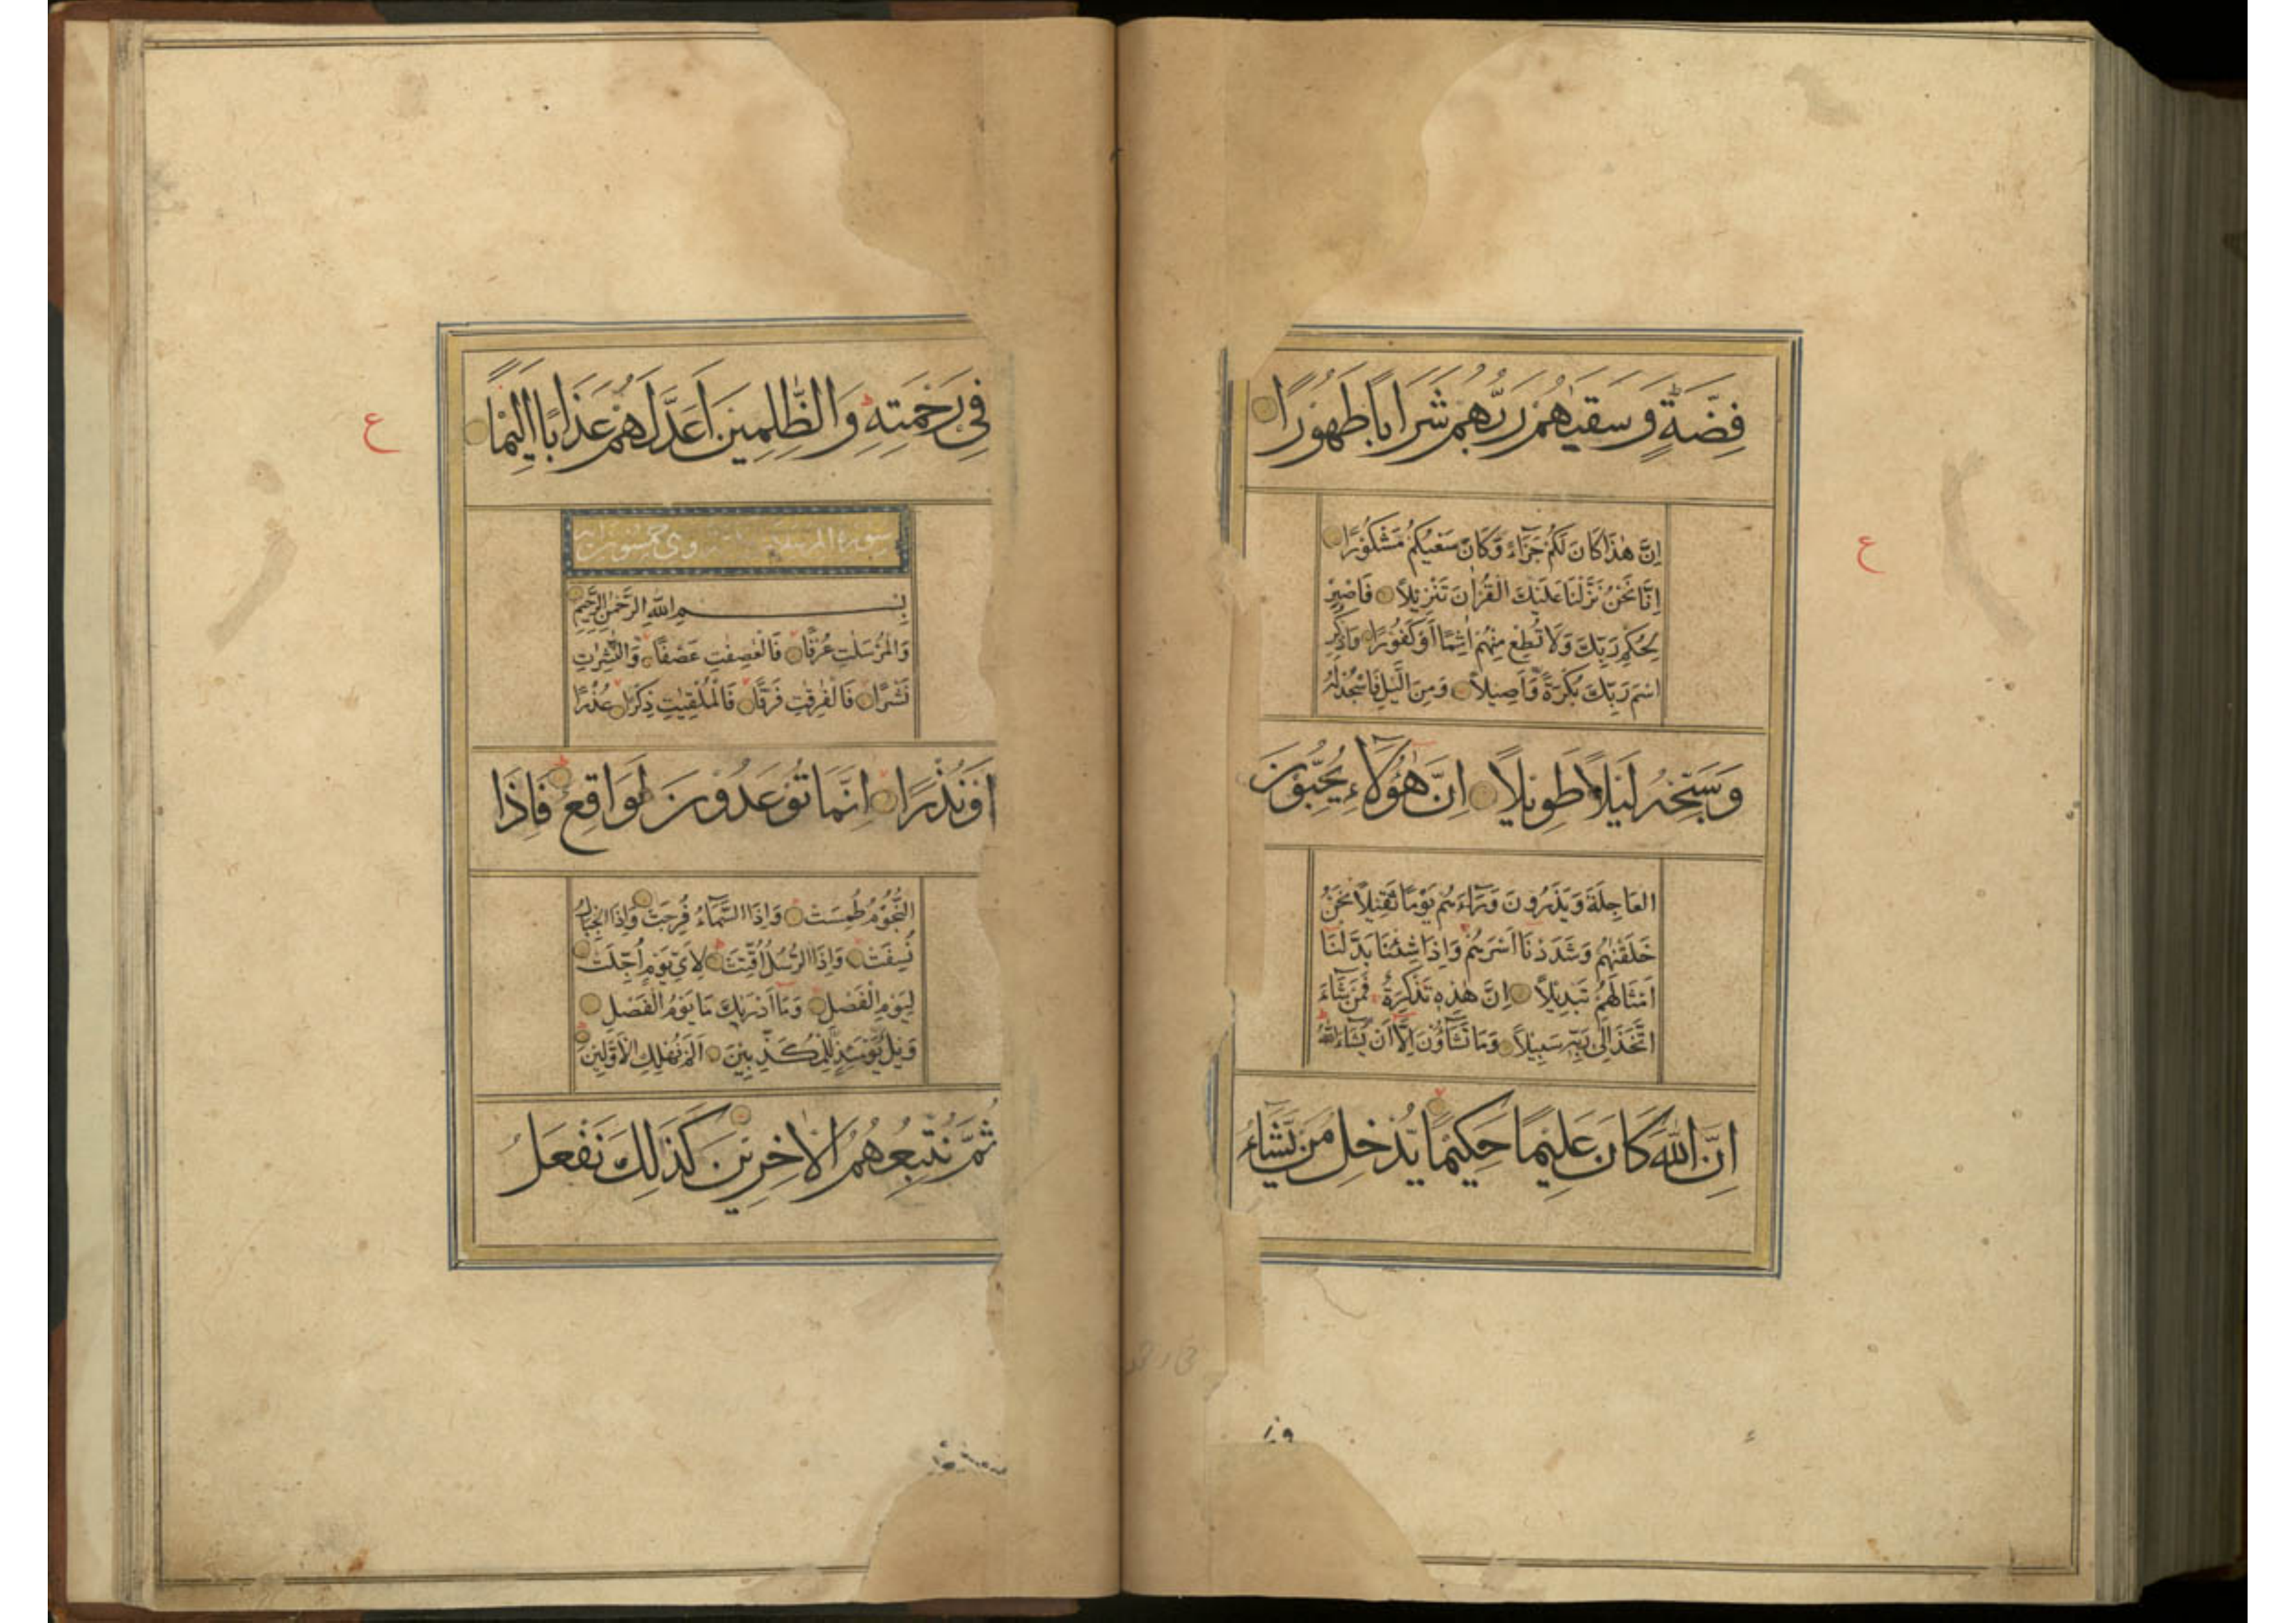 فِضَّةٍ وَسَقٰىهُمْ رَبُّهُمْ شَرَابًا طَهُوْرًا
اِنَّ هٰذَا كَانَ لَكُمْ جَزَآءً وَّكَانَ سَعْيُكُمْ مَّشْكُوْرًا
اِنَّا نَحْنُ نَزَّلْنَا عَلَيْكَ الْقُرْاٰنَ تَنْزِيْلًا فَاصْبِرْ
لِحُكْمِ رَبِّكَ وَلَا تُطِعْ مِنْهُمْ اٰثِمًا اَوْ كَفُوْرًا وَاذْكُرِ
اسْمَ رَبِّكَ بُكْرَةً وَّاَصِيْلًا وَمِنَ الَّيْلِ فَاسْجُدْ لَهٗ
وَسَبِّحْهُ لَيْلًا طَوِيْلًا اِنَّ هٰؤُلَآءِ يُحِبُّوْنَ
الْعَاجِلَةَ وَيَذَرُوْنَ وَرَآءَهُمْ يَوْمًا ثَقِيْلًا نَحْنُ
خَلَقْنٰهُمْ وَشَدَدْنَا اَسْرَهُمْ وَاِذَا شِئْنَا بَدَّلْنَا
اَمْثَالَهُمْ تَبْدِيْلًا اِنَّ هٰذِهٖ تَذْكِرَةٌ فَمَنْ شَآءَ
اتَّخَذَ اِلٰى رَبِّهٖ سَبِيْلًا وَمَا تَشَآؤُنَ اِلَّا اَنْ يَّشَآءَ اللّٰهُ
اِنَّ اللّٰهَ كَانَ عَلِيْمًا حَكِيْمًا يُّدْخِلُ مَنْ يَّشَآءُ
ع
فِيْ رَحْمَتِهٖ وَالظّٰلِمِيْنَ اَعَدَّ لَهُمْ عَذَابًا اَلِيْمًا
ع
سورة المرسلات وهى خمسون اية
بِسْمِ اللّٰهِ الرَّحْمٰنِ الرَّحِيْمِ
وَالْمُرْسَلٰتِ عُرْفًا فَالْعٰصِفٰتِ عَصْفًا وَّالنّٰشِرٰتِ
نَشْرًا فَالْفٰرِقٰتِ فَرْقًا فَالْمُلْقِيٰتِ ذِكْرًا عُذْرًا
اَوْ نُذْرًا اِنَّمَا تُوْعَدُوْنَ لَوَاقِعٌ فَاِذَا
النُّجُوْمُ طُمِسَتْ وَاِذَا السَّمَآءُ فُرِجَتْ وَاِذَا الْجِبَالُ
نُسِفَتْ وَاِذَا الرُّسُلُ اُقِّتَتْ لِاَيِّ يَوْمٍ اُجِّلَتْ
لِيَوْمِ الْفَصْلِ وَمَا اَدْرٰىكَ مَا يَوْمُ الْفَصْلِ
وَيْلٌ يَّوْمَئِذٍ لِّلْمُكَذِّبِيْنَ اَلَمْ نُهْلِكِ الْاَوَّلِيْنَ
ثُمَّ نُتْبِعُهُمُ الْاٰخِرِيْنَ كَذٰلِكَ نَفْعَلُ